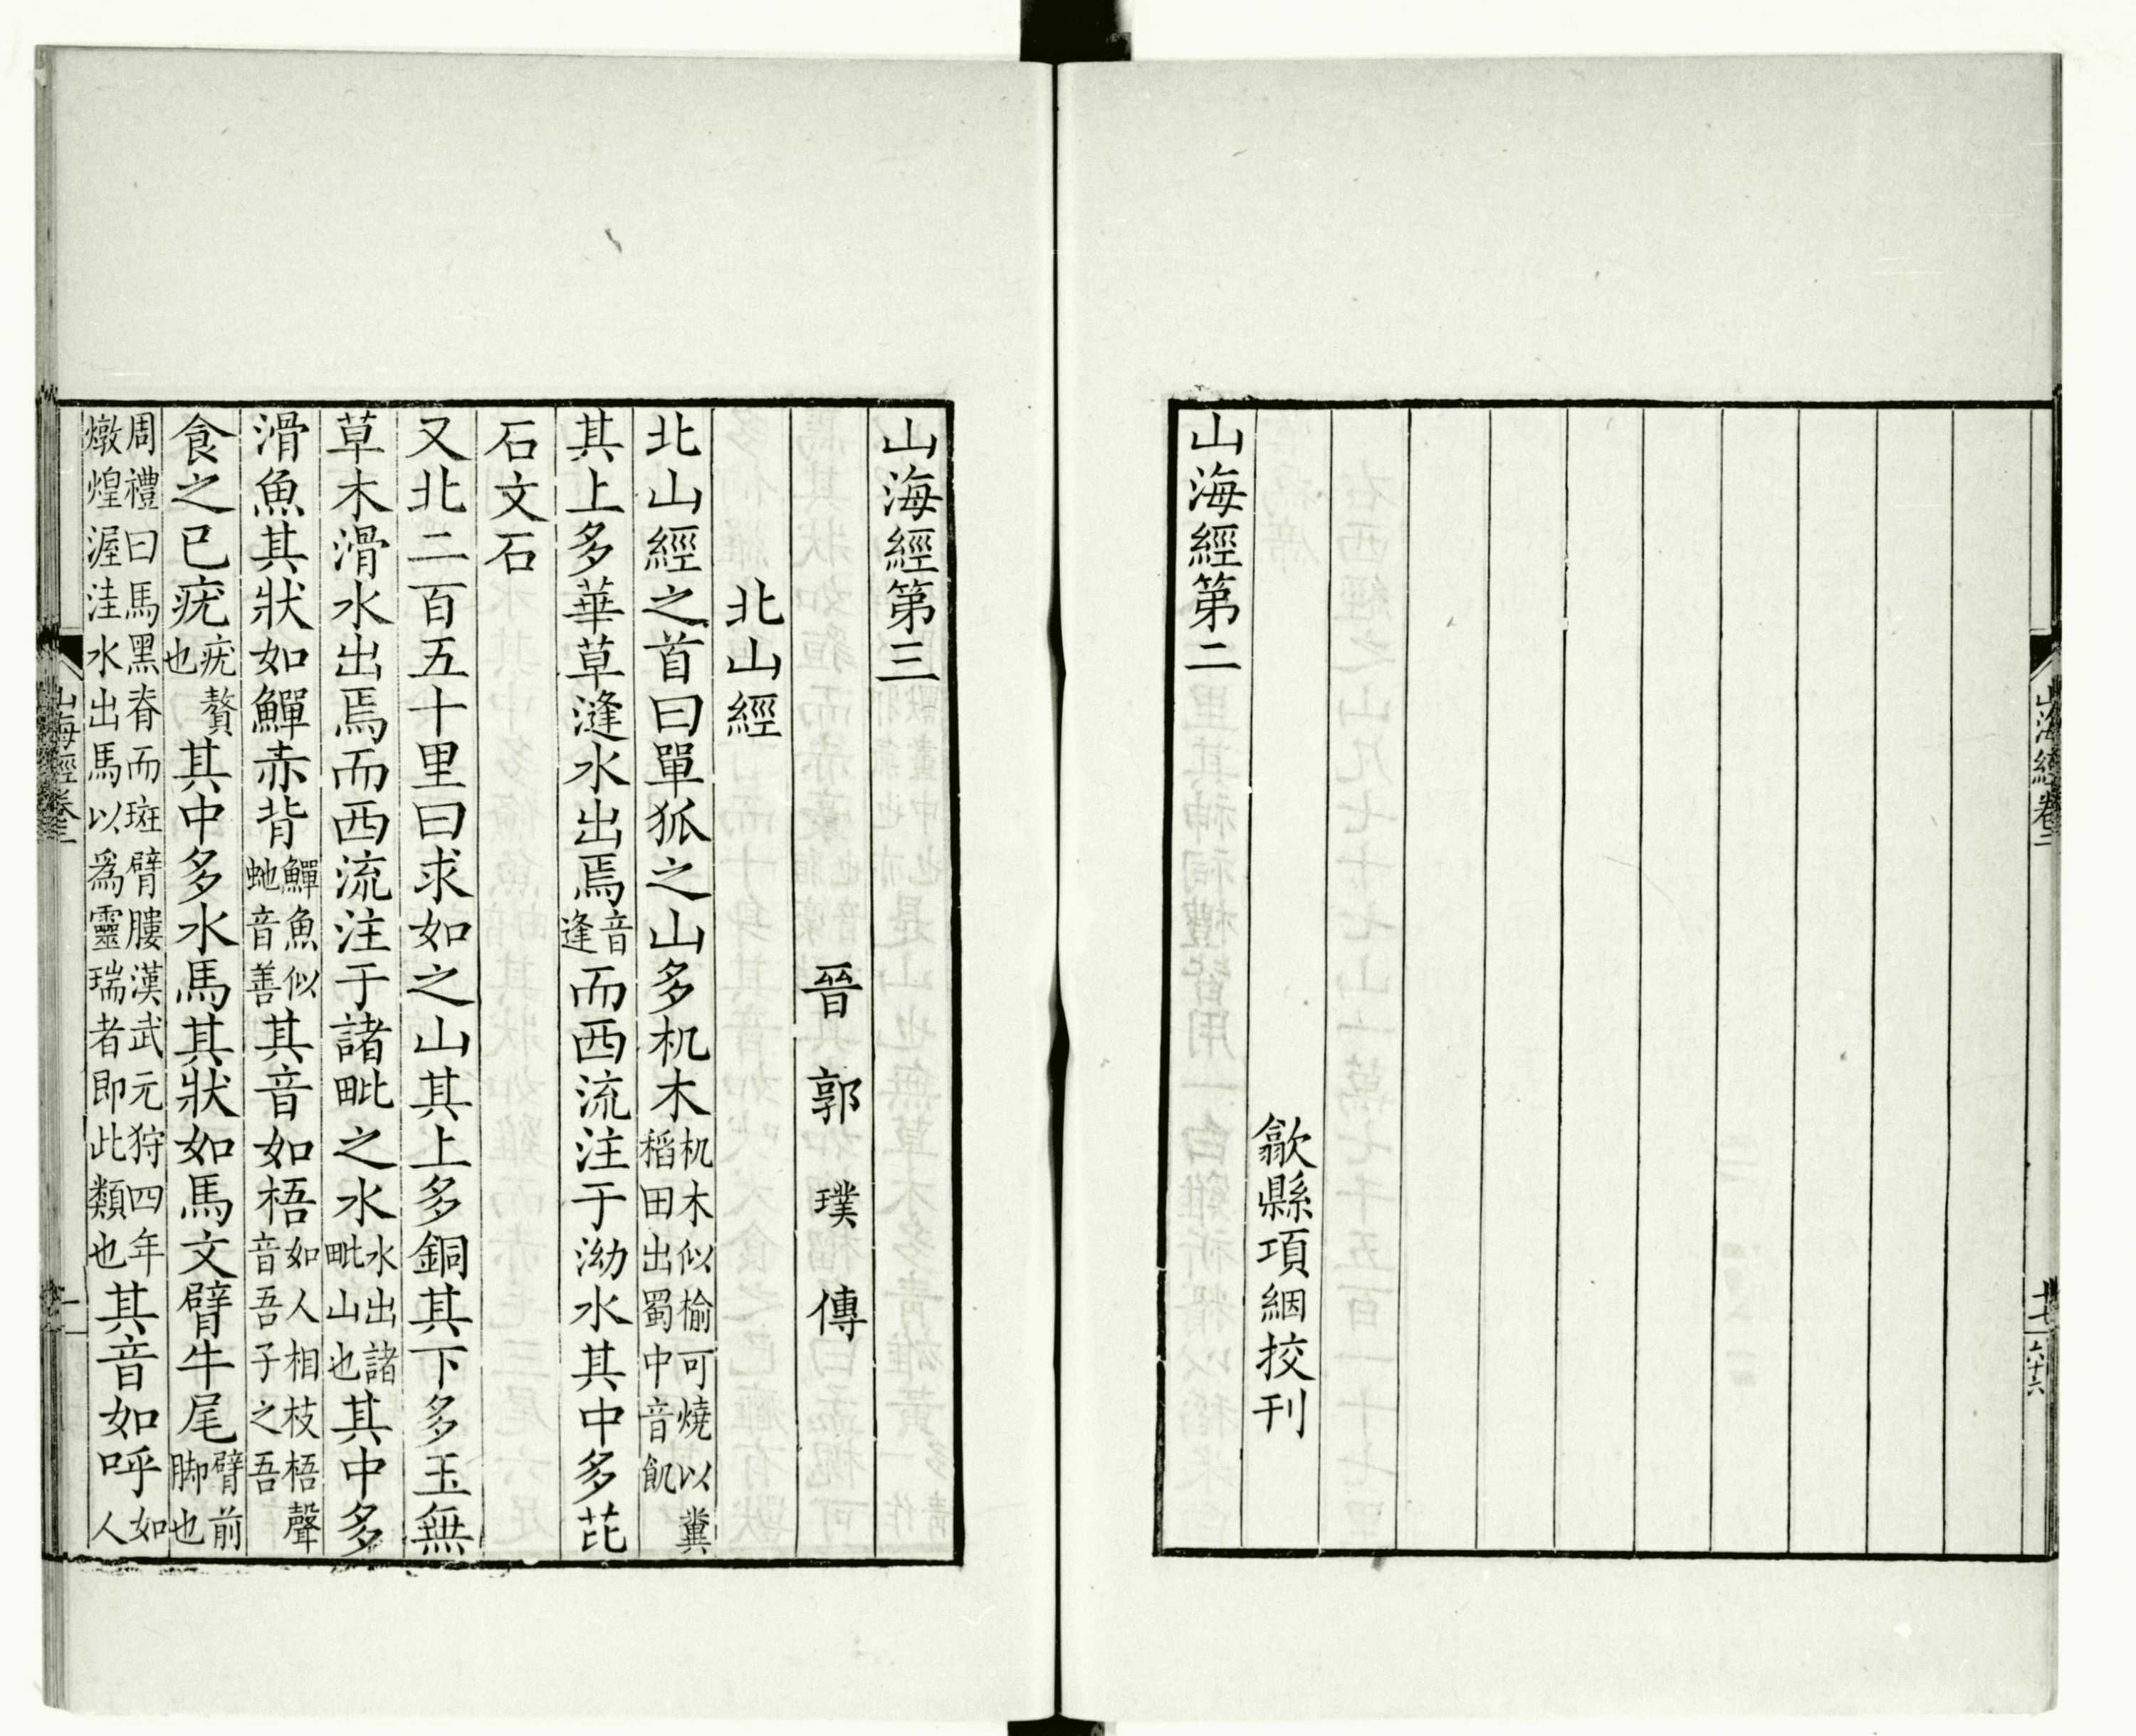 山海經卷二 十七 六十六
歙縣項絪挍刊
山海經第二
山海經第三
晉郭璞傳
北山經
北山經之首曰單狐之山多机木机木似榆可燒以糞稻田出蜀中音飢
其上多華草漨水出焉音逢而西流注于泑水其中多芘
石文石
又北二百五十里曰求如之山其上多銅其下多玉無
草木滑水出焉而西流注于諸毗之水水出諸毗山也其中多
滑魚其狀如鱓赤背鱓魚似虵音善其音如梧如人相枝梧聲音吾子之吾
食之已疣疣贅也其中多水馬其狀如馬文臂牛尾臂前脚也
周禮曰馬黑脊而斑臂膢漢武元狩四年燉煌渥洼水出馬以爲靈瑞者即此類也其音如呼如人
山海經卷三 一